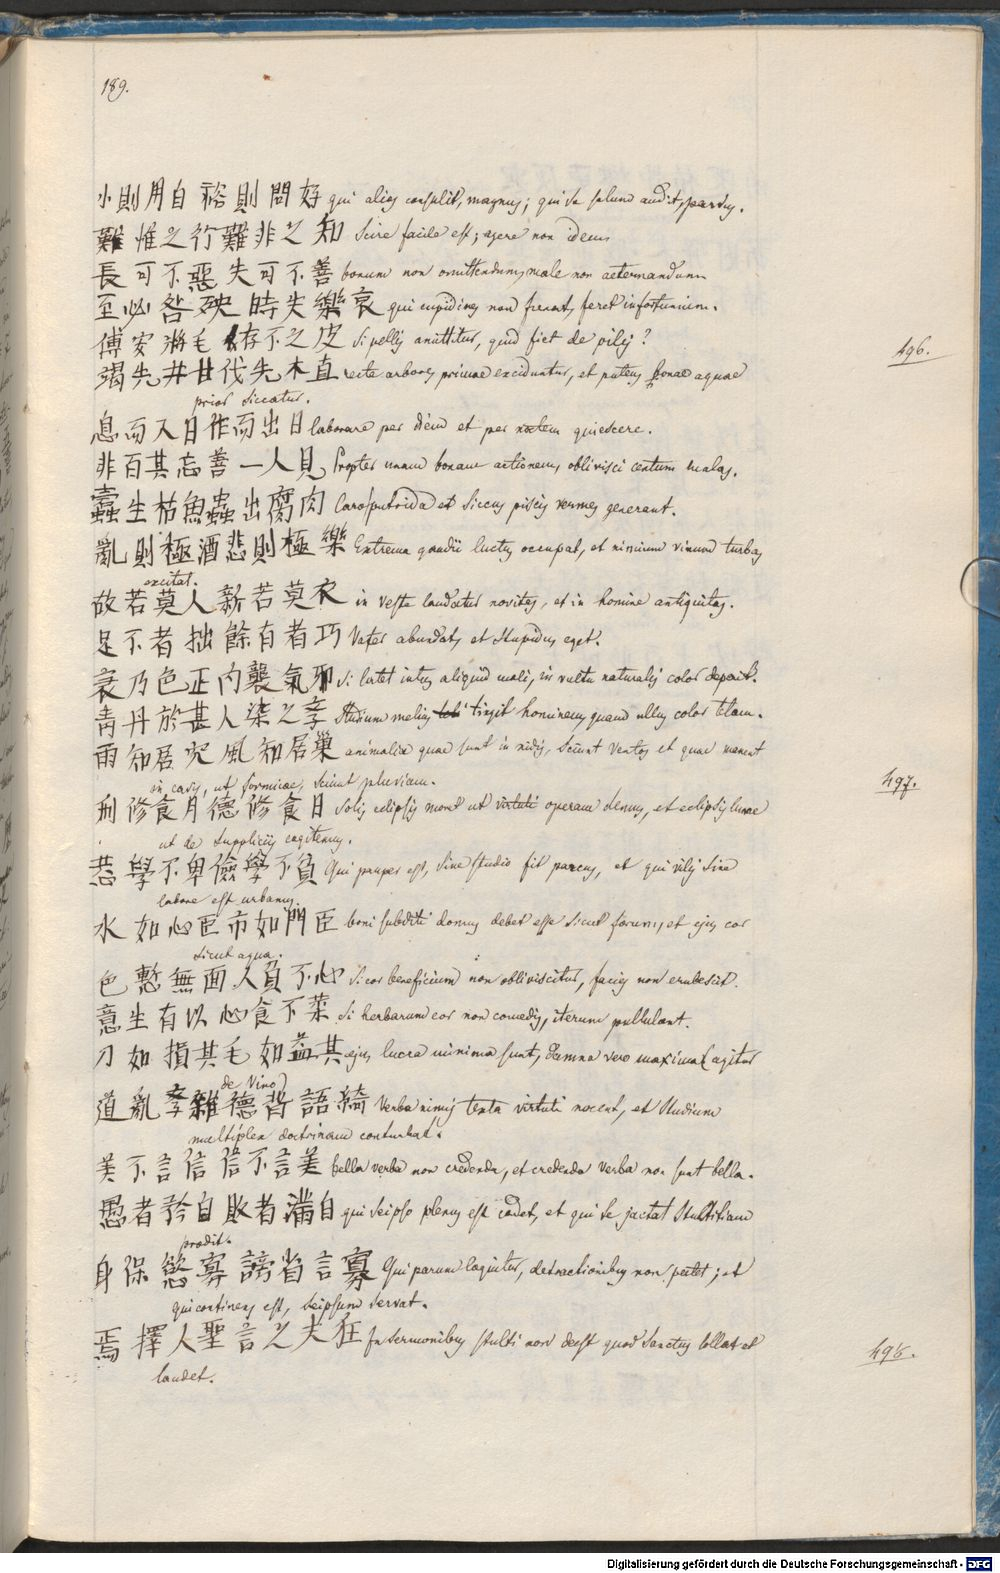 189.
小則用自 裕則問好 qui alios consulit, magnus; qui se solum audit, parvus.
難惟之行難非之知 Scire facile est; agere non idem
長可不惡失可不善 bonum non omittendum, male non aeternandum
至必咎殃時失樂哀 qui cupidines non frenat, feret infortunium.
傅安將毛存不之皮 Si pellis amittitur, quid fiet de pilis?
496.
竭先井甘伐先木直 recte arbores primae exciduntur, et puteus bonae aquae
prior siccatur.
息而入日作而出日 laborare per diem et per noctem quiescere.
非百其忘善一人見 Propter unam bonam actionem, oblivisci centum malas.
蠹生枯魚蟲出腐肉 Caro putrida et siccus piscis vermes generant.
亂則極酒悲則極樂 Extrema gaudii luctus occupat, et nimium vinum turbas
excitat.
故若莫人新若莫衣 in veste laudatur novitas, et in homine antiquitas.
足不者拙餘有者巧 Vafer abundat, et stupidus eget.
衰乃色正內襲氣邪 Si latet intus aliquid mali, in vultu naturalis color deperit.
青丹於甚人染之孝 Studium melius tingit hominem, quam ullus color telam.
雨知居穴風知居巢 animalia quae sunt in nidis, sciunt ventos et quae manent
in cavis, ut formicae, sciunt pluviam.
497.
刑修食月德修食日 Solis eclipsis monet ut virtuti operam demus, et eclipsis lunae
ut de suppliciis cogitemus.
恭學不卑儉學不負 Qui pauper est, sine studio fit parcus, et qui vilis sine
labore est urbanus.
水如心臣市如門臣 boni subditi domus debet esse sicut forum, et ejus cor
sicut aqua.
色慙無面人負不心 Si cor beneficium non obliviscitur, facies non erubescit.
意生有以心食不菜 Si herbarum cor non comedis, iterum pullulant.
刀如損其毛如益其 ejus lucra minima sunt, damna vero maxima (agitur
de vino)
道亂孝雜德背語綺 Verba nimis texta virtuti nocent, et studium
multiplex doctrinam conturbat.
美不言信信不言美 bella verba non credenda, et credenda verba non sunt bella.
愚者矜自敗者滿自 qui seipso plenus est cadet, et qui se jactat stultitiam
prodit.
身保慾寡謗省言寡 Qui parum loquitur, detractionibus non patet; et
qui continens est, seipsum servat.
焉擇人聖言之夫狂 In sermonibus stulti non deest quod Sanctus tollat et
laudet.
498.
Digitalisierung gefördert durch die Deutsche Forschungsgemeinschaft - DFG